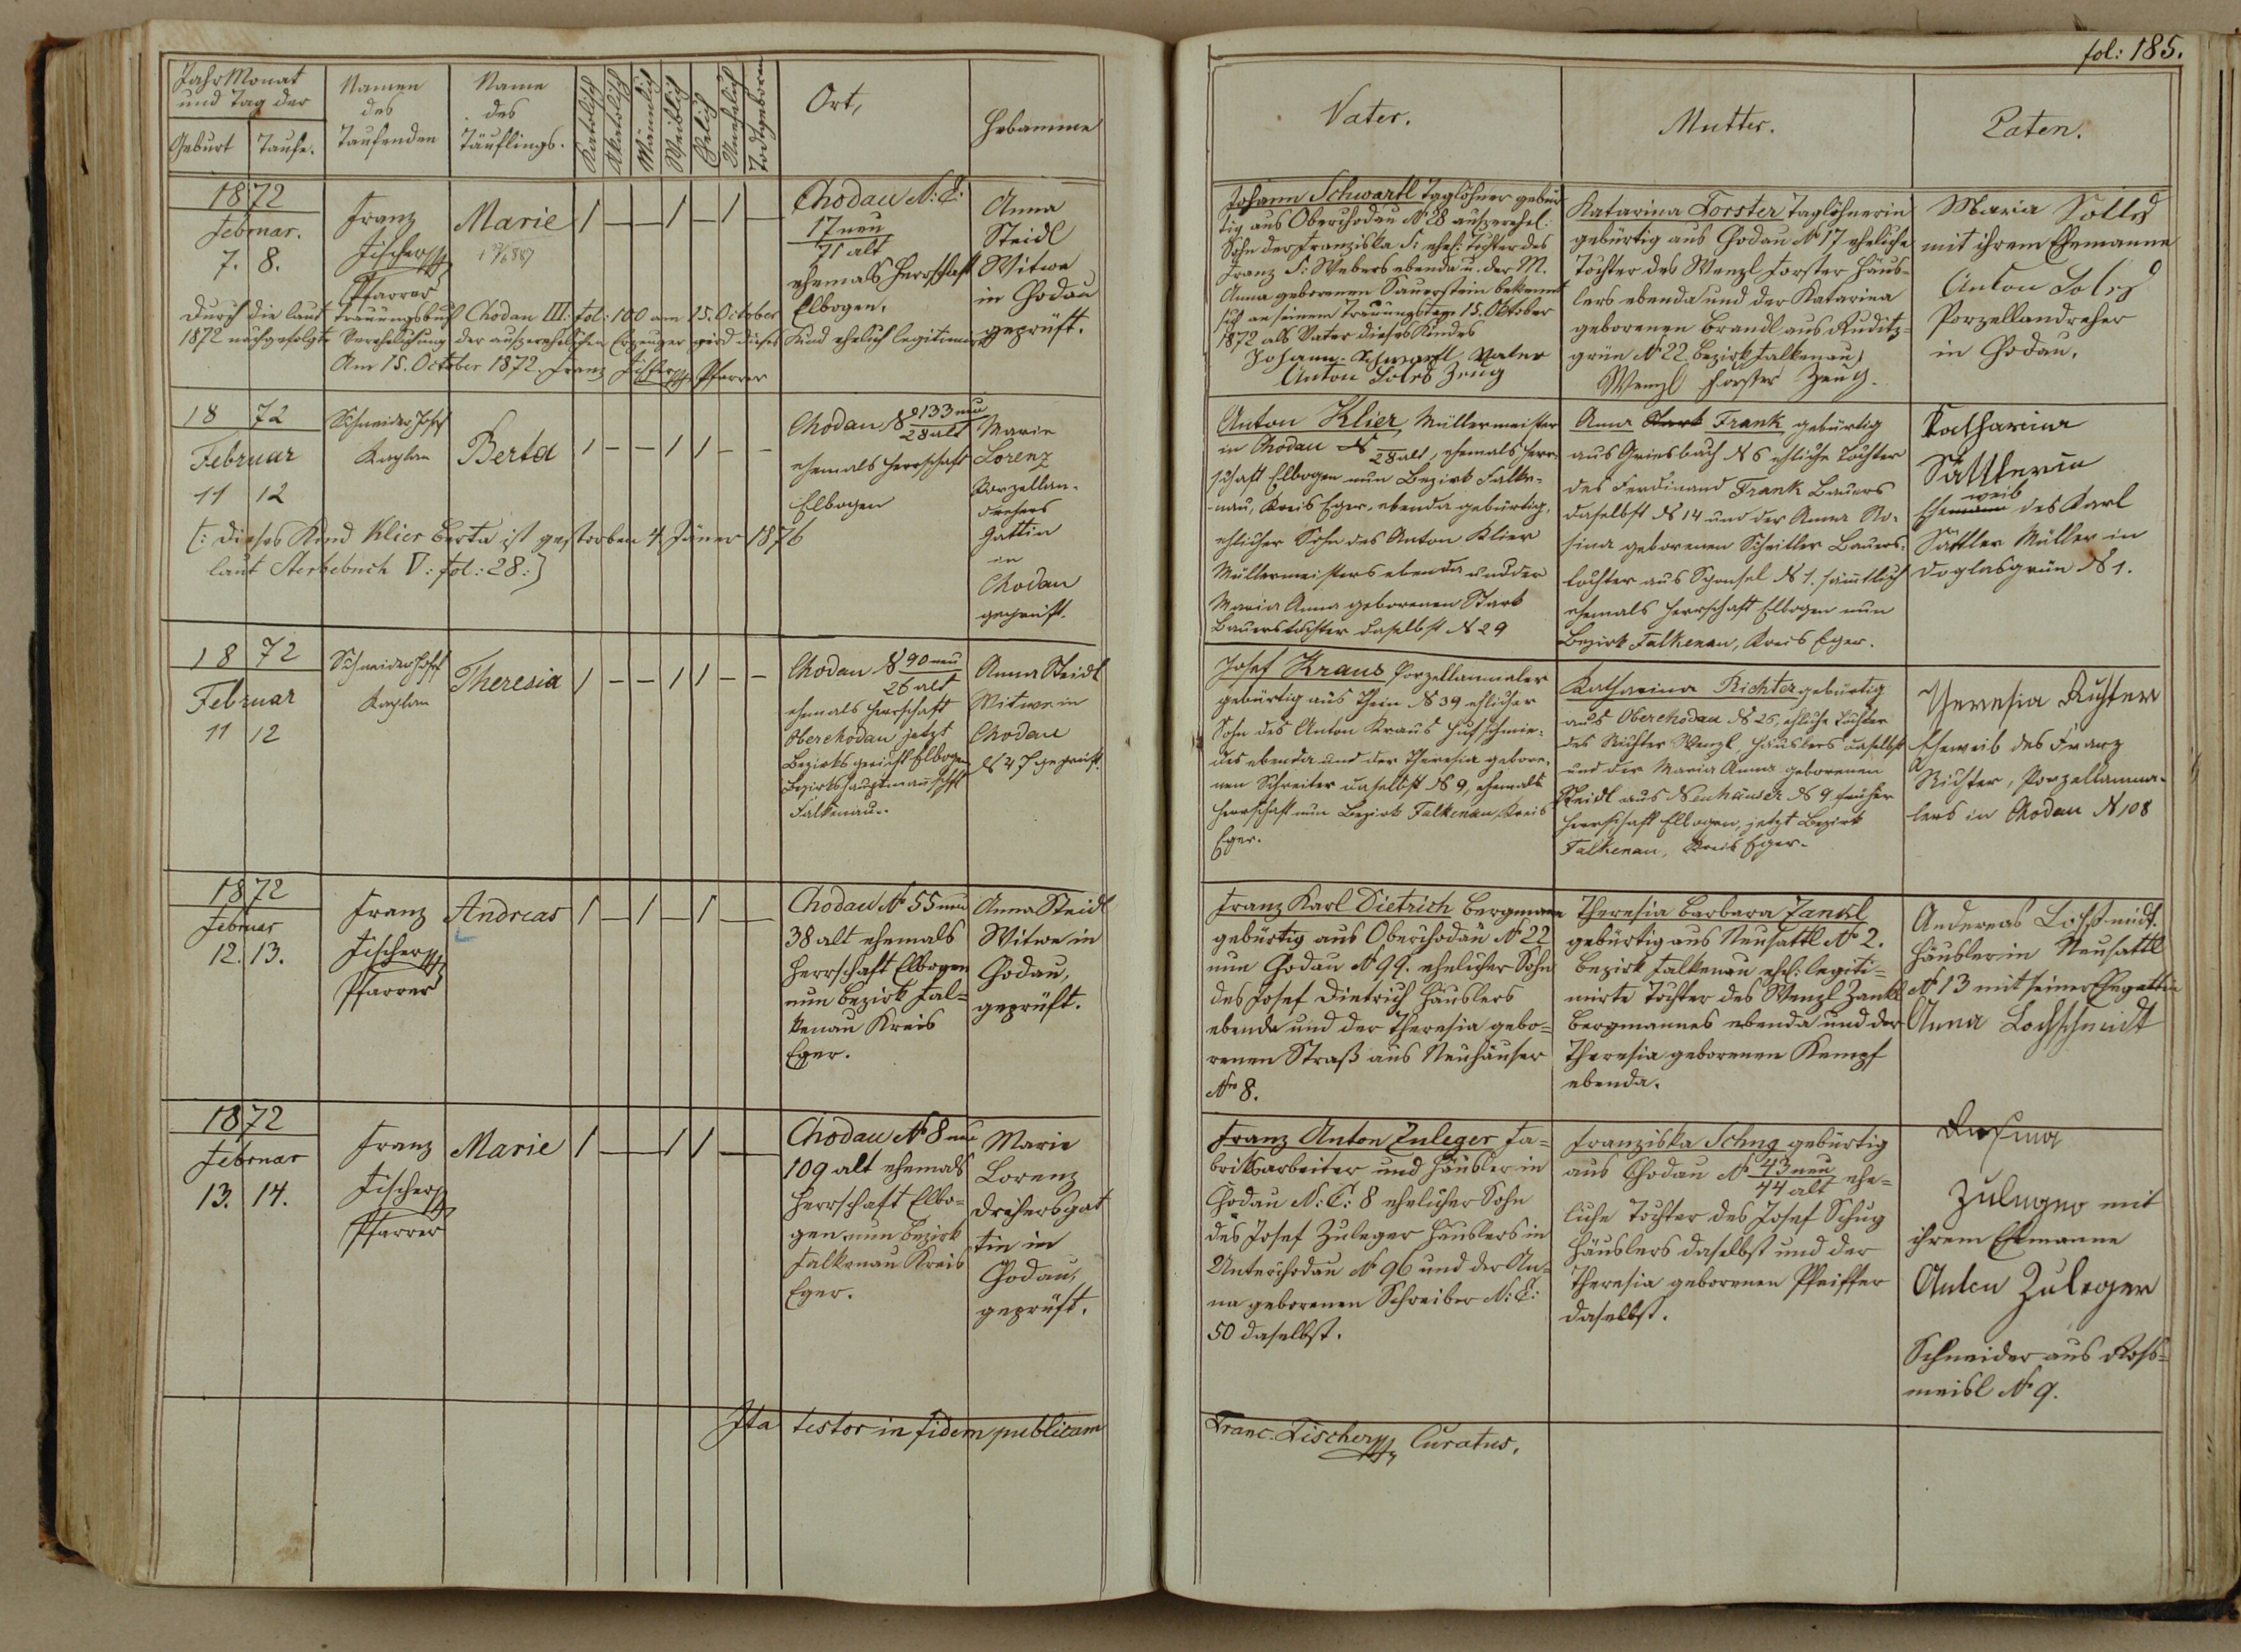 fol: 185.
Jahr Monat
und Tag der
Geburt
Taufe.
Namen
des
Taufenden
Name
des
Täuflings.
Katolisch
Akatolisch
Männlich
Weiblich
Ehelich
Unehelich
Todtgeboren
Ort,
Hebamme
Vater.
Mutter.
Paten.
1872
Februar.
7. 8.
Franz
Fischer
Pfarrer
Marie
Chodau N: C:
17 neu
71 alt
ehemals Herrschaft
Elbogen.
Anna
Steidl
Witwe
in Chodau
geprüft.
Durch die laut Trauungsbuch Chodau III: fol: 100 am 15. October
1872 nachgefolgte Verehelichung der außerehelichen Erzeuger wird dieses Kind ehelich legitimirt
Am 15. October 1872. Franz Fischer Pfarrer
Johann Schwartl Taglöhner gebür
tig aus Oberchodau N 28 außerehel.
Sohn der Franziska S: ehel: Tochter des
Franz S: Webers ebenda u. der M.
Anna geborenen Sauerstein bekennt
sich an seinem Trauungstage 15. Oktober
1872 als Vater dieses Kindes
Johann Schwartl Vater
Anton Soles Zeug
Katarina Forster Taglöhnerin
gebürtig aus Chodau No 17 eheliche
Tochter des Wenzl Forster Häus-
lers ebenda und der Katarina
geborenen Brandl aus Ruditz-
grün No 22. Bezirk Falkenau
Wenzl Forster Zeug.
Maria
mit ihrem Ehemanne
Anton
Porzellandreher
in Chodau.
18 72
Februar
11 12
Schneider Josef
Kaplan
Berta
Chodau N 133 neu
28 alt
ehemals Herrschaft
Elbogen
Marie
Lorenz
Porzellan-
drehers
Gattin
in
Chodau
geprüft.
[: Dieses Kind Klier Berta ist gestorben 4 Jäner 1876
laut Sterbebuch V: fol: 28:]
Anton Klier, Müllermeister
in Chodau N 28 alt, ehemals Herr-
schaft Elbogen nun Bezirk Falke-
nau, Kreis Eger, ebenda gebürtig,
ehlicher Sohn des Anton Klier
Müllermeisters ebenda und der
Maria Anna geborenen Stark
Bauerstochter daselbst N 29
Anna Stark Frank gebürtig
aus Griesbach N 6 ehliche Tochter
des Ferdinand Frank Bauers
daselbst N 14 und der Anna Ro-
sina geborenen Schriller Bauers-
tochter aus Sponsel N 1. sämmtlich
ehemals Herrschaft Elbogen nun
Bezirk Falkenau, Kreis Eger.
Katharina
Sattlerin
Ehemann weib des Karl
Sattler Müller in
Doglasgrün N 1.
18 72
Februar
11 12
Schneider Josef
Kaplan
Theresia
Chodau N 90 neu
26 alt
ehemals Herrschaft
Oberchodau jetzt
Bezirksgericht Elbogen
Bezirkshauptmannschft
Falkenau.
Anna Steidl
Witwe in
Chodau
N 47 geprüft.
Josef Kraus Porzellanmaler
gebürtig aus Thein N 39 ehlicher
Sohn des Anton Kraus Hufschmie-
des ebenda und der Theresia gebore-
nen Schreiter daselbst N 9, ehemals
Herrschaft nun Bezirk Falkenau, Kreis
Eger.
Katharina Richter gebürtig
aus Oberchodau N 26, ehliche Tochter
des Richter Wenzl, Häuslers daselbst
und der Maria Anna geborenen
Steidl aus Neuhäuser N 9 früher
Herrschaft Elbogen, jetzt Bezirk
Falkenau, Kreis Eger.
Theresia Richter
Eheweib des Franz
Richter, Porzellanma-
lers in Chodau N 108
1872
Februar
12. 13.
Franz
Fischer
Pfarrer
Andreas
Chodau No 55 neu
38 alt ehemals
Herrschaft Elbogen
nun Bezirk Fal=
kenau Kreis
Eger.
Anna Steidl
Witwe in
Chodau,
geprüft.
Franz Karl Dietrich Bergmann
gebürtig aus Oberchodau No 22
nun Chodau No 99. ehelicher Sohn
des Josef Dietrich Häuslers
ebenda und der Theresia gebo=
renen Straß aus Neuhäuser
Nro 8.
Theresia Barbara Zankl
gebürtig aus Neusattl No 2.
Bezirk Falkenau ehel: legiti=
mirte Tochter des Wenzl Zankl
Bergmannes ebenda und der
Theresia geborenen Kempf
ebenda.
Andereas Loschmidt.
Häusler in Neusattl
No 13 mit seiner Ehegattin
Anna Lochschmidt
1872
Februar
13. 14.
Franz
Fischer
Pfarrer
Marie
Chodau No 8 neu
109 alt ehemals
Herrschaft Elbo=
gen nun Bezirk
Falkenau Kreis
Eger.
Marie
Lorenz
Drehersgat
tin in
Chodau,
geprüft.
Franz Anton Zuleger Fa=
briksarbeiter und Häusler in
Chodau N: C: 8 ehelicher Sohn
des Josef Zuleger Häuslers in
Unterchodau No 96 und der An=
na geborenen Schreiber N: C:
50 daselbst.
Franziska Schug gebürtig
aus Chodau No 43 neu ehe=
44 alt
liche Tochter des Josef Schug
Häuslers daselbst und der
Theresia geborenen Pfeiffer
daselbst.
Rosina
Zuleger mit
ihrem Ehmanne
Anton Zuleger
Schneider aus Roß=
meisl No 9.
Ita testor in fidem publicam
Franc. Fischer Curatus.